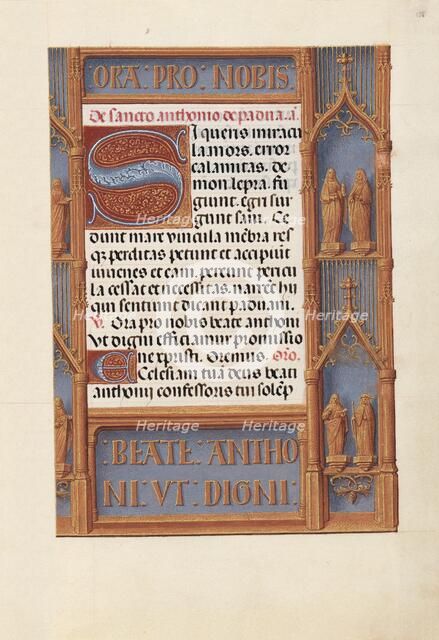 ORA : PRO : NOBIS
De sancto anthonio de padua. añ.
Si queris miracu
la mors. error
calamitas. de
mon lepra. fu
giunt. egri sur
gunt sani. Ce
dunt mare vincula mēbra res
q̄ perditas petunt et accipiūt
iuuenes et cani. pereunt pericu
la cessat et necessitas. narrēt hij
qui sentiunt dicant paduani.
V. Ora pro nobis beate anthoni
Vt digni efficiamur promissio
ne xpristi. Oremus. Oro.
Ecclesiam tuā deus beati
anthonij confessoris tui solēp
: BEATE : ANTHO
NI : VT : DIGNI :
Heritage
Heritage
Heritage
Heritage
Heritage
Heritage